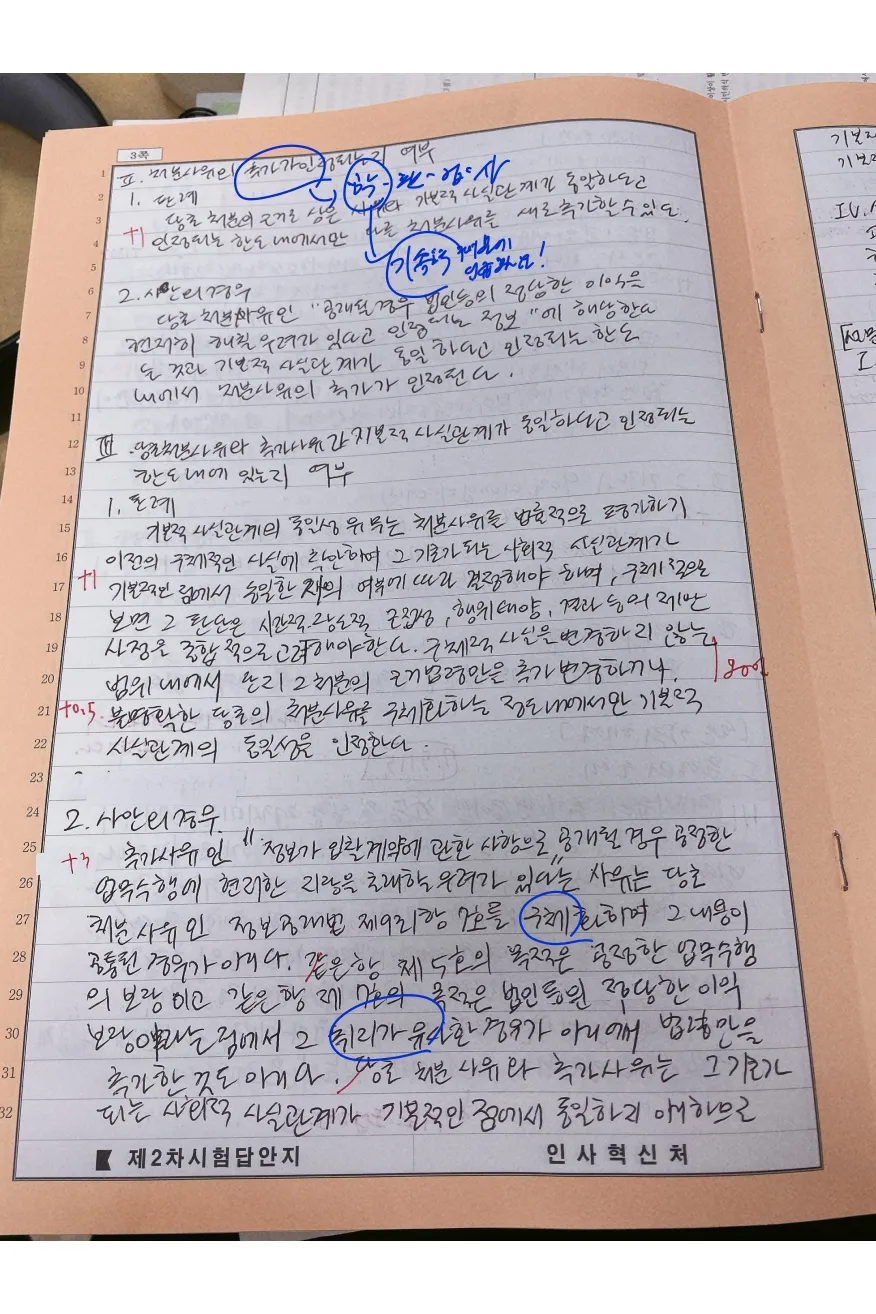 3쪽
Ⅱ. 처분사유의 추가가 인정되는지 여부
학-판-검-사
1. 판례
당초 처분의 근거로 삼은 사유와 기본적 사실관계가 동일하다고
+1 인정되는 한도 내에서만 다른 처분사유를 새로 추가할 수 있다.
기속력
2. 사안의 경우
당초 처분사유인 "공개될 경우 법인등의 정당한 이익을
현저히 해칠 우려가 있다고 인정되는 정보"에 해당한다
는 것과 기본적 사실관계가 동일하다고 인정되는 한도
내에서 처분사유의 추가가 인정된다.
Ⅲ. 당초처분사유와 추가사유가 기본적 사실관계가 동일하다고 인정되는
한도내에 있는지 여부
1. 판례
기본적 사실관계의 동일성 유무는 처분사유를 법률적으로 평가하기
이전의 구체적인 사실에 착안하여 그 기초가 되는 사회적 사실관계가
+1 기본적인 점에서 동일한지의 여부에 따라 결정해야 하며, 구체적으로
보면 그 판단은 시간적·장소적 근접성, 행위태양, 결과 등의 제반
사정을 종합적으로 고려해야한다. 구체적 사실을 변경하지 않는
범위 내에서 단지 그 처분의 근거법령만을 추가변경하거나,
+0.5 불명확한 당초의 처분사유를 구체화하는 정도내에서만 기본적
사실관계의 동일성을 인정한다.
2. 사안의 경우
+3 추가사유인 "정보가 입찰계약에 관한 사항으로 공개될 경우 공정한
업무수행에 현저한 지장을 초래할 우려가 있다"는 사유는 당초
처분사유인 정보공개법 제9조1항 7호를 구체화하여 그 내용이
공통된 경우가 아니다. 같은항 제5호의 목적은 공정한 업무수행
의 보장이고 같은항 제7호의 목적은 법인등의 정당한 이익
보장이라는 점에서 그 취지가 유사한 경우가 아니어서 법령만을
추가한 것도 아니다. 당초 처분사유와 추가사유는 그 기초가
되는 사회적 사실관계가 기본적인 점에서 동일하지 아니하므로
제2차시험답안지 인사혁신처
1
2
3
4
5
6
7
8
9
10
11
12
13
14
15
16
17
18
19
20
21
22
23
24
25
26
27
28
29
30
31
32
기본적
Ⅳ.